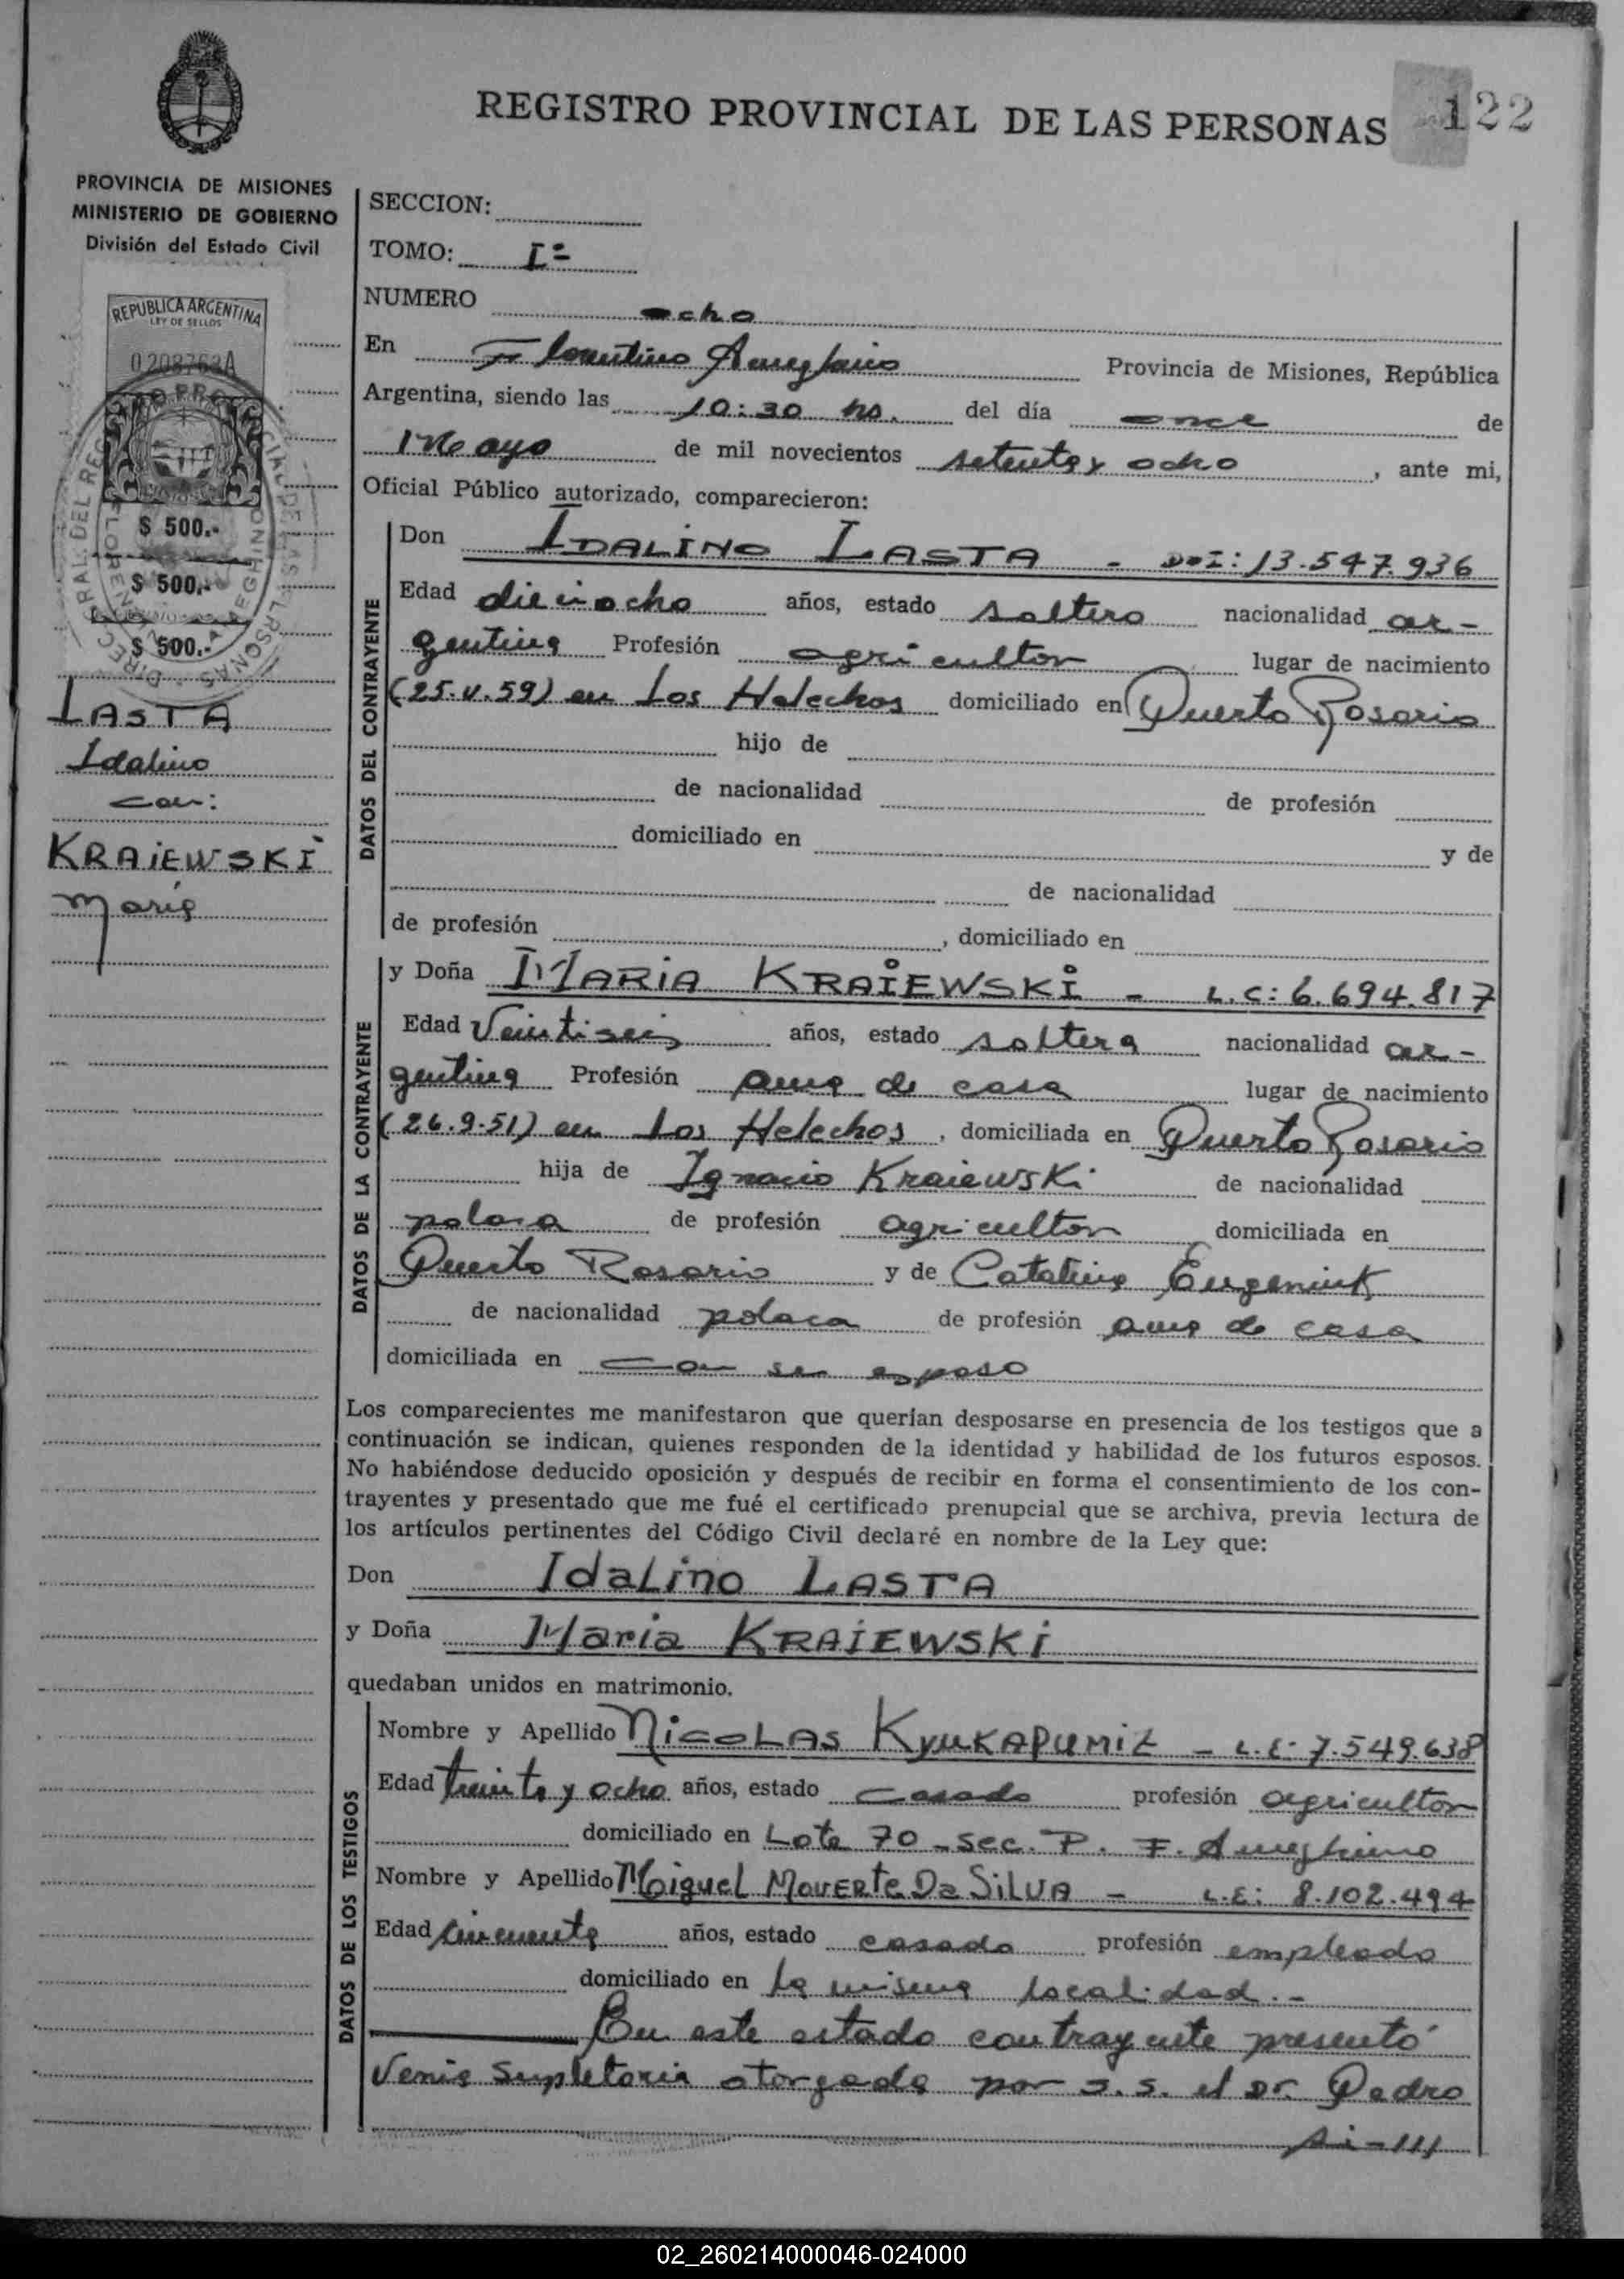 REGISTRO PROVINCIAL DE LAS PERSONAS
122
PROVINCIA DE MISIONES
MINISTERIO DE GOBIERNO
División del Estado Civil
REPUBLICA ARGENTINA
LEY DE SELLOS
0208763A
$ 500.-
$ 500.-
$ 500.-
LASTA
Idalino
con:
KRAIEWSKI
María
SECCION:
TOMO: Iº
NUMERO ocho
En Florentino Ameghino Provincia de Misiones, República
Argentina, siendo las 10:30 hs. del día once de
Mayo de mil novecientos setenta y ocho, ante mi,
Oficial Público autorizado, comparecieron:
DATOS DEL CONTRAYENTE
Don IDALINO LASTA - DNI: 13.547.936
Edad dieciocho años, estado soltero nacionalidad ar-
gentina Profesión agricultor lugar de nacimiento
(25.V.59) en Los Helechos domiciliado en Puerto Rosario
hijo de
de nacionalidad de profesión
domiciliado en y de
de nacionalidad
de profesión , domiciliado en
DATOS DE LA CONTRAYENTE
y Doña MARIA KRAIEWSKI - L.C: 6.694.817
Edad Veintiseis años, estado soltera nacionalidad ar-
gentina Profesión ama de casa lugar de nacimiento
(26.9.51) en Los Helechos, domiciliada en Puerto Rosario
hija de Ignacio Kraiewski de nacionalidad
polaca de profesión agricultor domiciliada en
Puerto Rosario y de Catalina Eugeniuk
de nacionalidad polaca de profesión ama de casa
domiciliada en con su esposo
Los comparecientes me manifestaron que querían desposarse en presencia de los testigos que a
continuación se indican, quienes responden de la identidad y habilidad de los futuros esposos.
No habiéndose deducido oposición y después de recibir en forma el consentimiento de los con-
trayentes y presentado que me fué el certificado prenupcial que se archiva, previa lectura de
los artículos pertinentes del Código Civil declaré en nombre de la Ley que:
Don Idalino LASTA
y Doña Maria KRAIEWSKI
quedaban unidos en matrimonio.
DATOS DE LOS TESTIGOS
Nombre y Apellido NICOLAS - L.E: 7.549.638
Edad treinta y ocho años, estado casado profesión agricultor
domiciliado en Lote 70 - Sec. P. F. Ameghino
Nombre y Apellido Miguel Da SILVA - L.E: 8.102.494
Edad cincuenta años, estado casado profesión empleado
domiciliado en la misma localidad.-
En este estado contrayente presentó
Venia Supletoria otorgada por S.S. el Dr. Pedro
Si-///
02_260214000046-024000